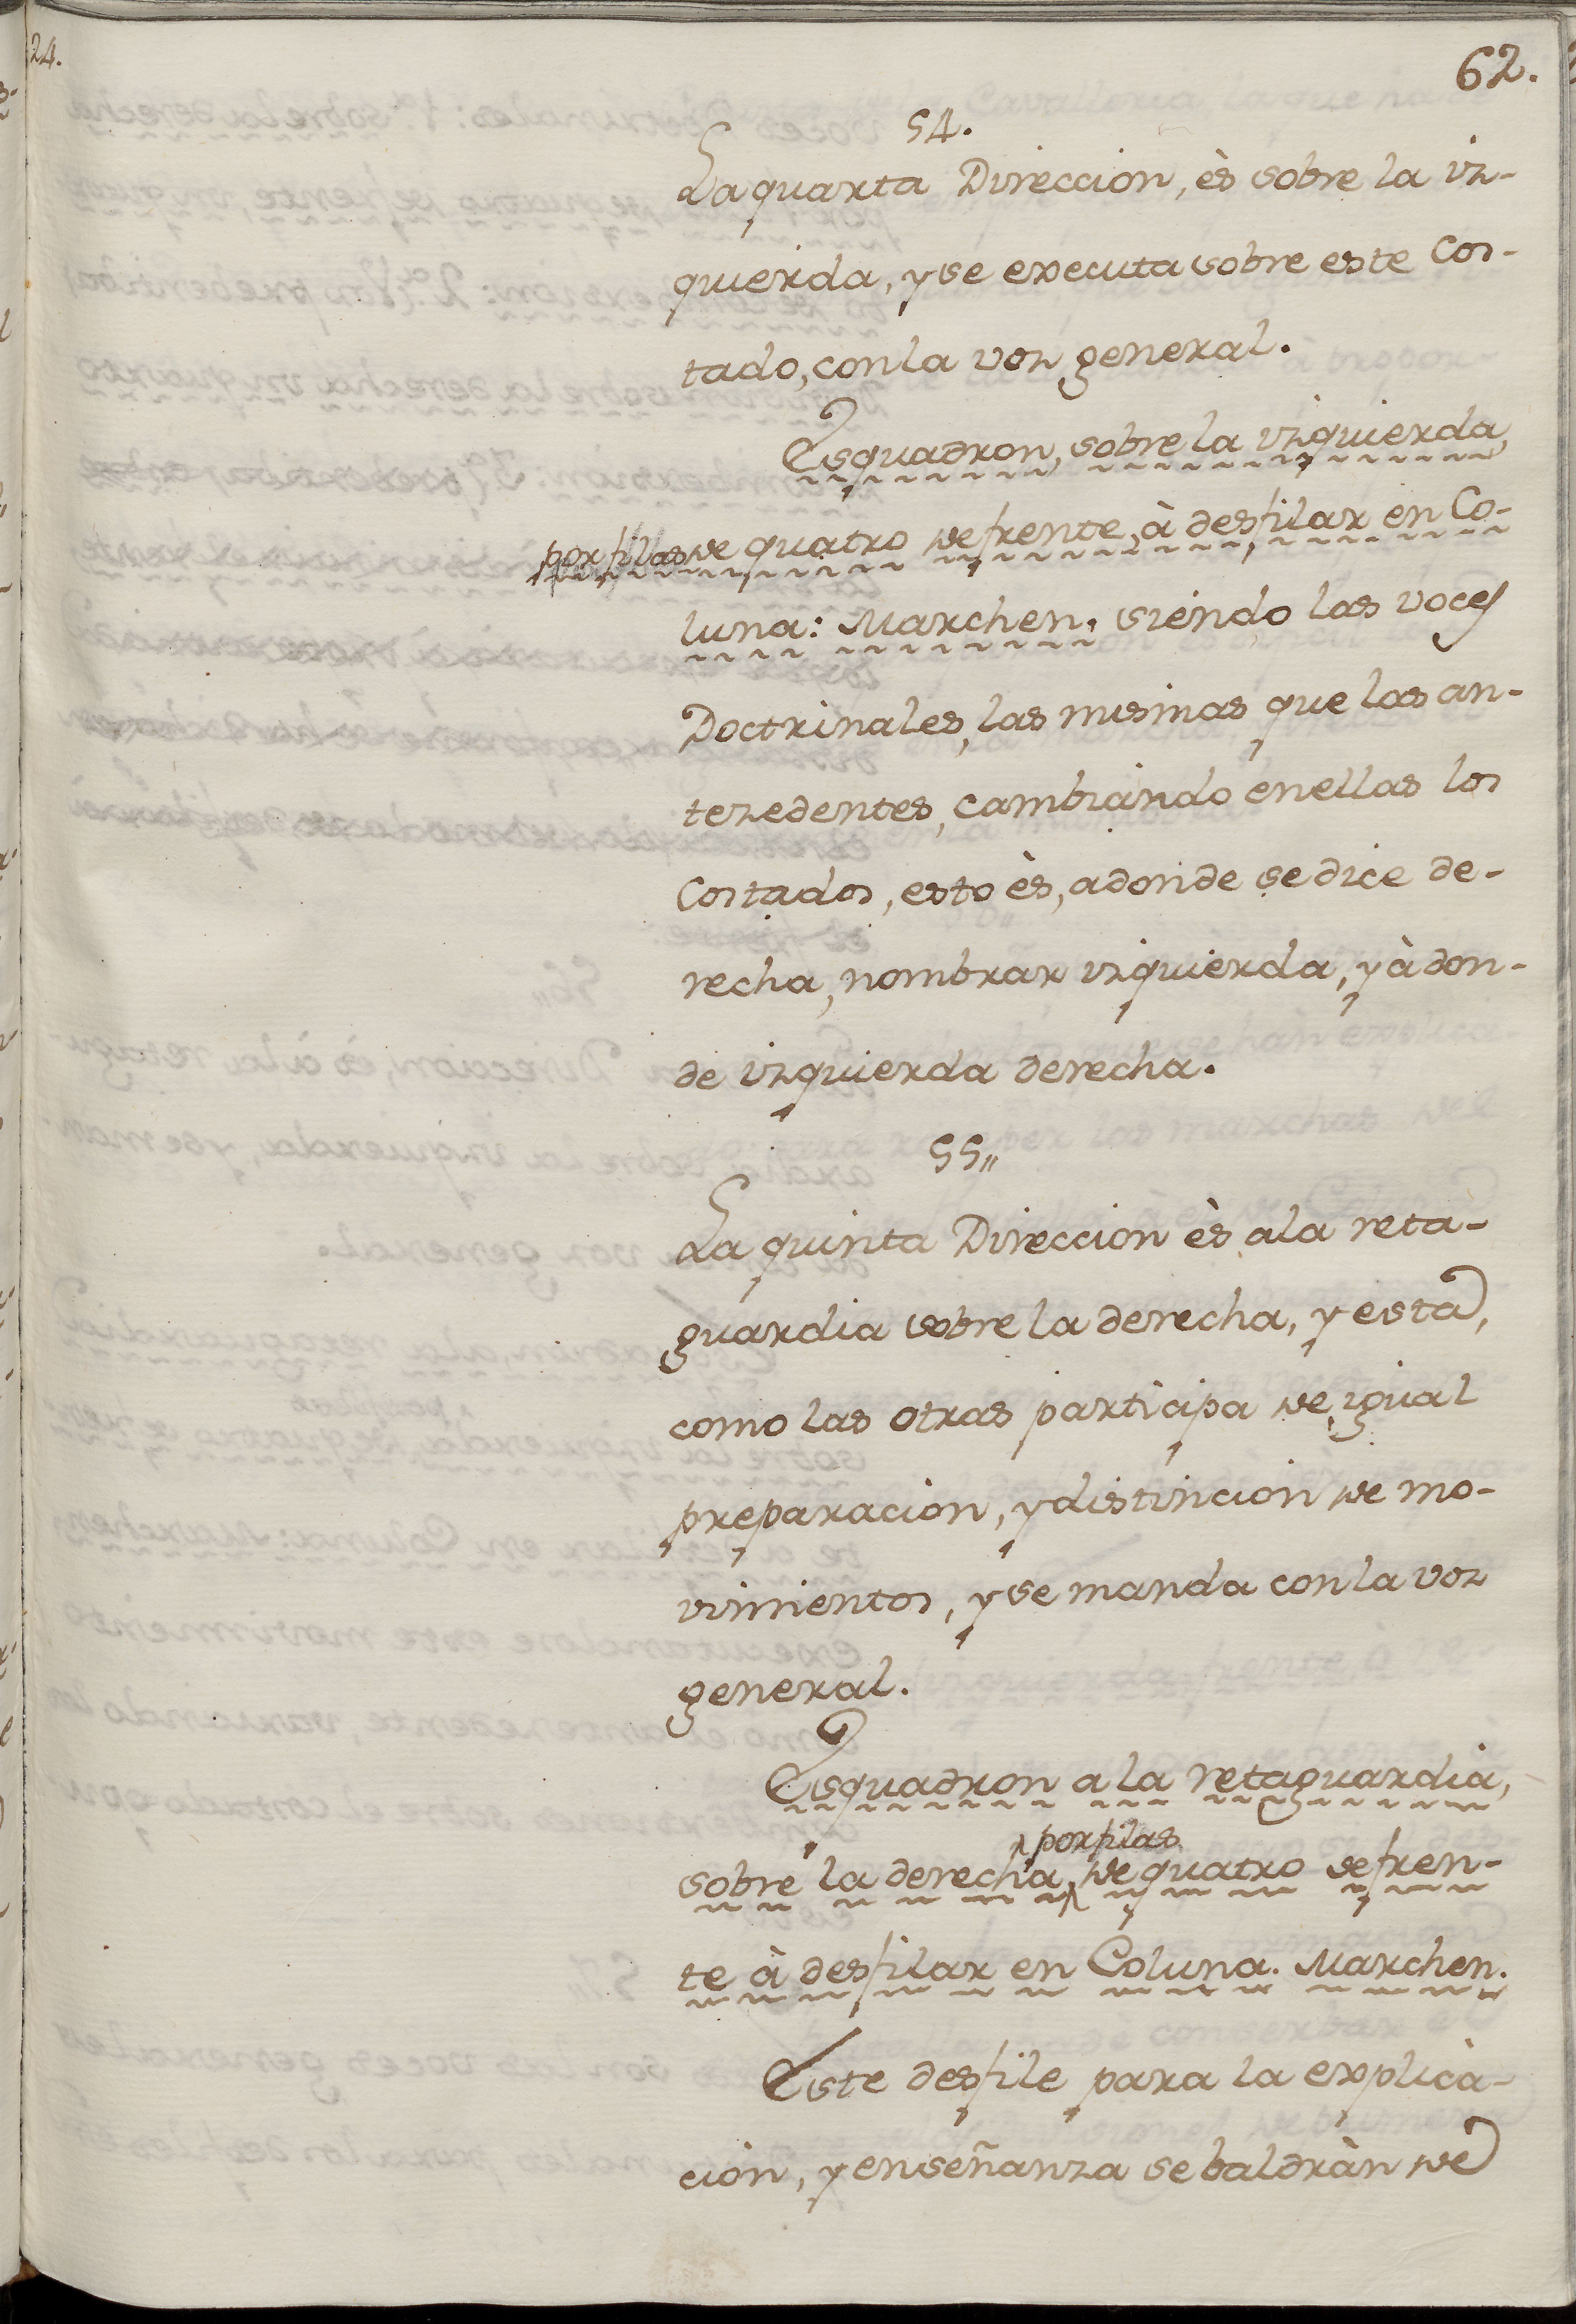 24.
62.
54.
La quarta Direccion, ès sobre la iz-
quierda, y se executa sobre este Cos-
tado, con la voz general.
Esquadron, sobre la izquierda,
por filas de quatro de frente, à desfilar en Co-
luna: Marchen, siendo las voces
Doctrinales, las mismas que las an-
tezedentes, cambiando en ellas los
Costados, esto ès, adonde se dice de-
recha, nombrar izquierda, y à don-
de izquierda derecha.
55,,
La quinta Direccion ès a la reta-
guardia sobre la derecha, y esta,
como las otras participa de igual
preparacion, y distincion de mo-
vimientos, y se manda con la voz
general.
Esquadron a la retaguardia,
por filas
sobre la derecha, de quatro de fren-
te à desfilar en Coluna. Marchen.
Este desfile para la explica-
ciòn, y enseñanza se baldràn de